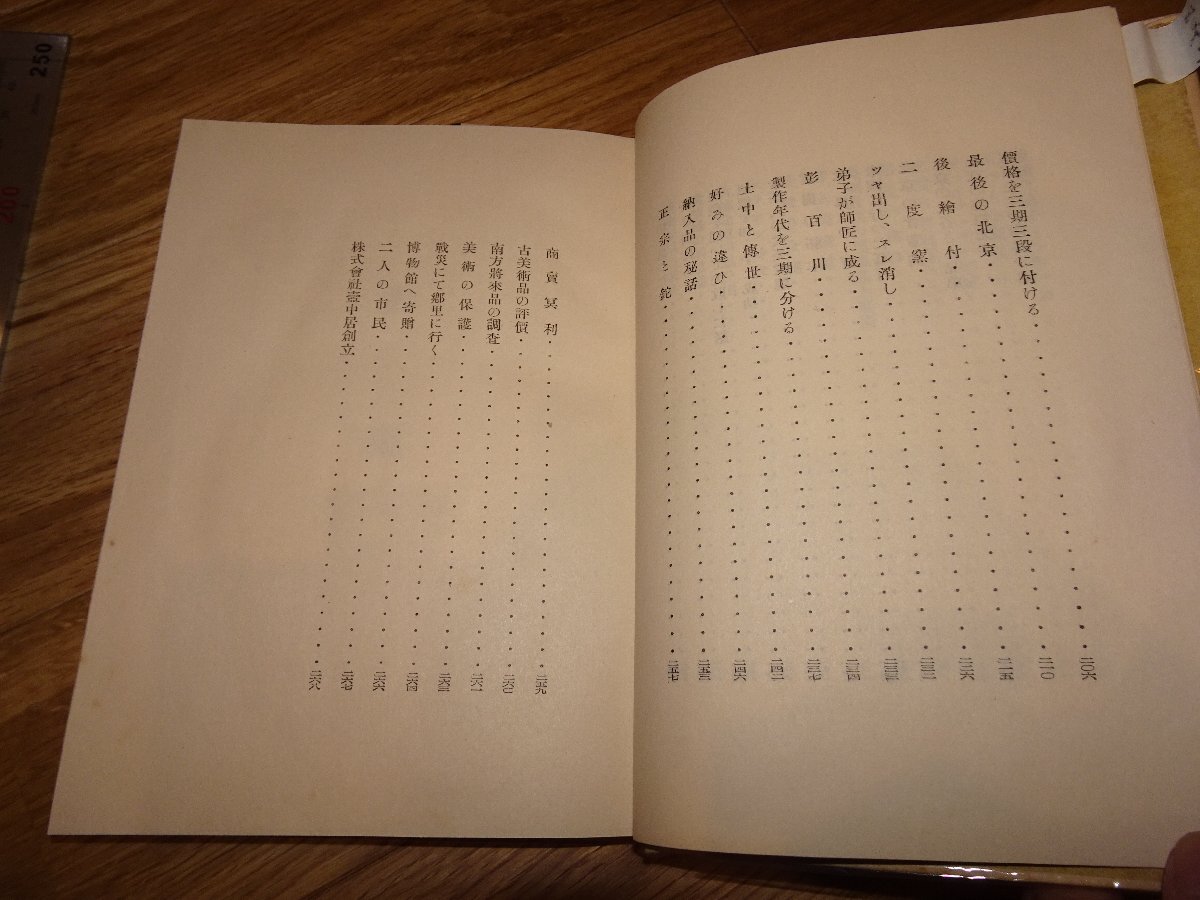 價格を三期三段に付ける・・・・・・・・・・・・・・・二〇六
最後の北京・・・・・・・・・・・・・・・・・・二一〇
後繪付・・・・・・・・・・・・・・・・・・二一五
二度窯・・・・・・・・・・・・・・・・・・二二六
ツヤ出し、スレ消し・・・・・・・・・・・・・・・・二三二
弟子が師匠に成る・・・・・・・・・・・・・・・・二三三
彭百川・・・・・・・・・・・・・・・・・・二三四
製作年代を三期に分ける・・・・・・・・・・・・・・・二三七
土中と傳世・・・・・・・・・・・・・・・・・・二四二
好みの違ひ・・・・・・・・・・・・・・・・・・二四六
納入品の秘話・・・・・・・・・・・・・・・・・二五三
正宗と鉈・・・・・・・・・・・・・・・・・・二五七
商賣冥利・・・・・・・・・・・・・・・・二五九
古美術品の評價・・・・・・・・・・・・・・・・二六〇
南方將來品の調査・・・・・・・・・・・・・・・二六一
美術の保護・・・・・・・・・・・・・・・・二六三
戰災にて鄕里に行く・・・・・・・・・・・・・・・二六四
博物館へ寄贈・・・・・・・・・・・・・・・・二六六
二人の市民・・・・・・・・・・・・・・・・二六七
株式會社壺中居創立・・・・・・・・・・・・・・・二六八
250
200